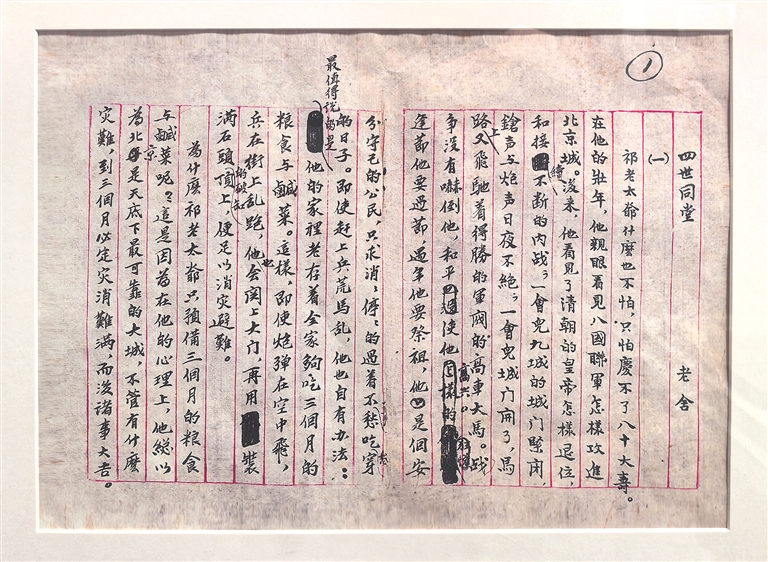 1
四世同堂 老舍
(一)
祁老太爺什麽也不怕,只怕慶不了八十大壽。
在他的壯年,他親眼看見八國聯軍怎樣攻進
北京城。後來,他看見了清朝的皇帝怎樣退位,
和接續不断的內战;一會兒九城的城門緊閉
鎗声与炮声日夜不絕;一會兒城门開了,馬
路上又飛馳着得勝的軍閥的高車大馬。战
争沒有嚇倒他,和平使他高兴
逢節他要過節,過年他要祭祖,他是個安
分守己的公民,只求消消停停的過着不愁吃穿
的日子。即使赶上兵荒馬乱,他也自有办法:
最值得說的是他的家裡老存着全家夠吃三個月的
粮食与鹹菜。這樣,即使炮弹在空中飛,
兵在街上乱跑,他也会関上大门,再用裝
满石頭的破缸頂上,便足以消灾避難。
為什麽祁老太爺只預備三個月的粮食
与鹹菜呢?這是因為在他的心理上,他總以
為北京是天底下最可靠的大城,不管有什麽
灾難,到三個月必定灾消難满,而後諸事大吉。